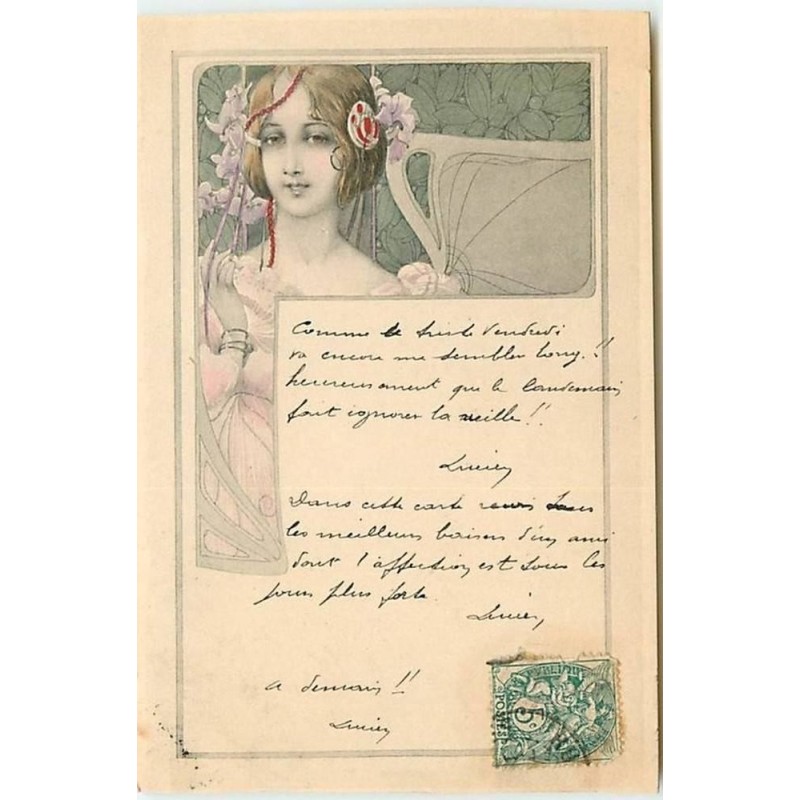 Comme le triste Vendredi
va encore me sembler long!!
heureusement que le lendemain
fait ignorer la veille!!
Lucien
Dans cette carte tous
les meilleurs baisers d'un ami
dont l'affection est tous les
jours plus forte.
Lucien
a demain!!
Lucien
5c
POSTES